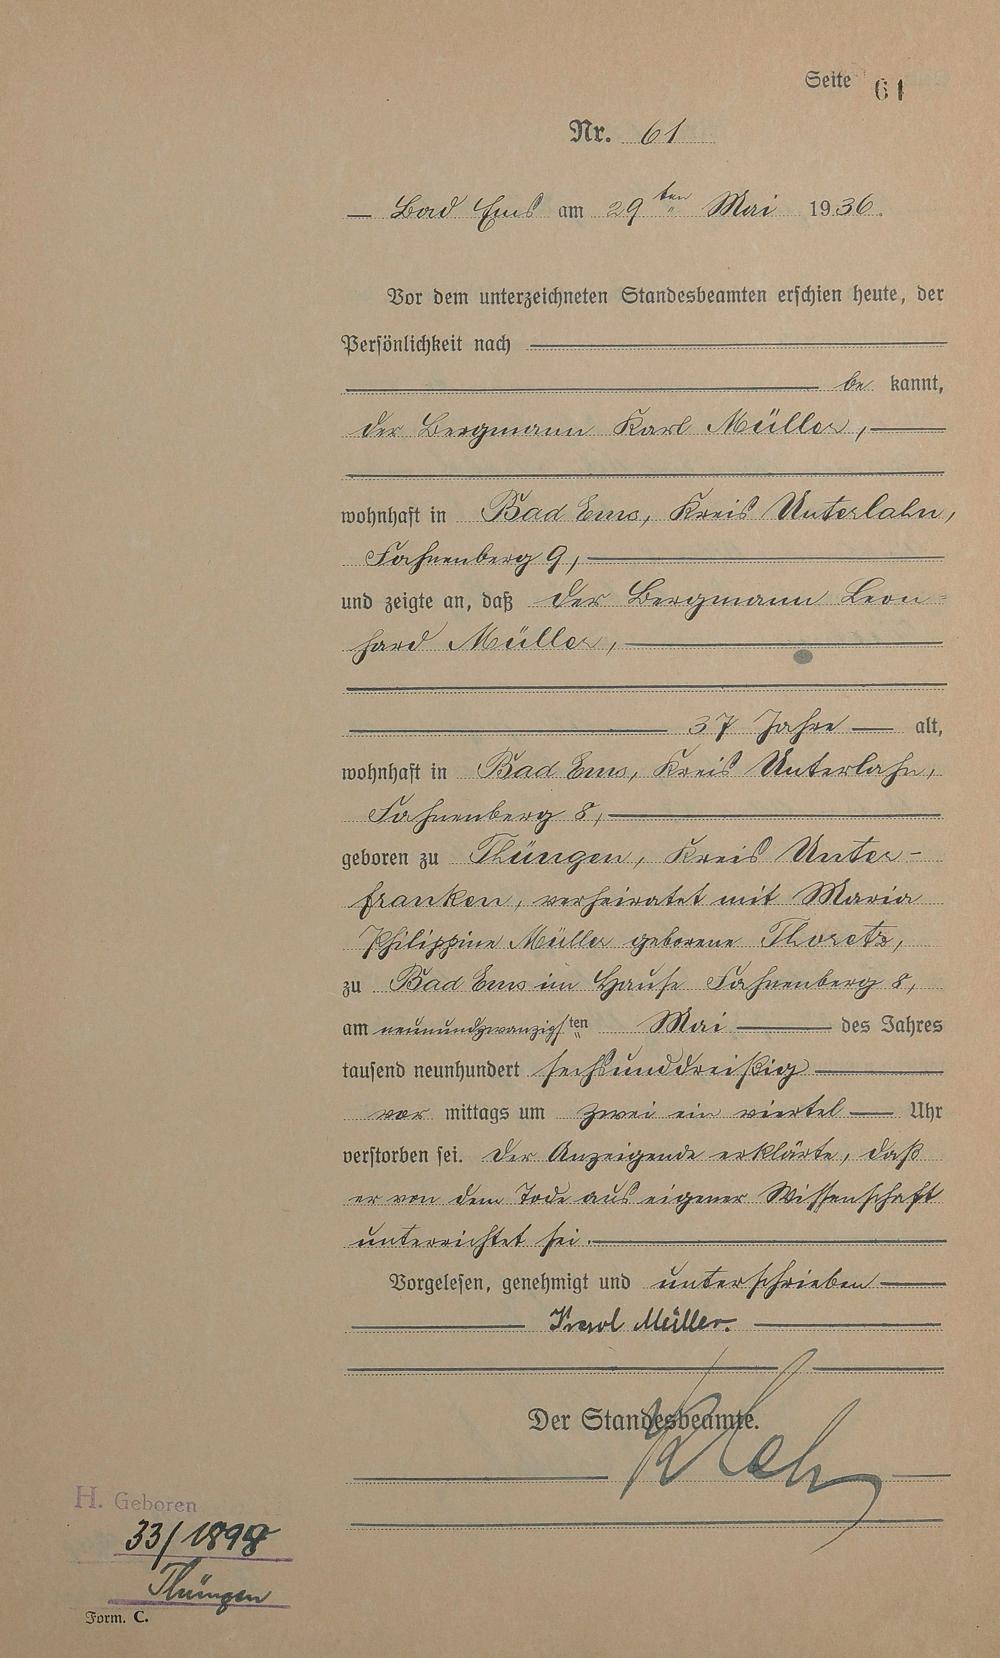 Seite 61
Nr. 61
— Bad Ems am 29ten Mai 1936.
Vor dem unterzeichneten Standesbeamten erschien heute, der
Persönlichkeit nach
be kannt,
der Bergmann Karl Müller,
wohnhaft in Bad Ems, Kreis Unterlahn,
Fahnenberg 9,
und zeigte an, daß der Bergmann Leon-
hard Müller,
37 Jahre — alt,
wohnhaft in Bad Ems, Kreis Unterlahn,
Fahnenberg 8,
geboren zu Thüngen, Kreis Unter-
franken, verheiratet mit Maria
Philippine Müller geborene Thoretz,
zu Bad Ems im Hause Fahnenberg 8,
am neunundzwanzigsten Mai — des Jahres
tausend neunhundert sechsunddreißig
vor mittags um zwei ein viertel — Uhr
verstorben sei. Der Anzeigende erklärte, daß
er von dem Tode aus eigener Wissenschaft
unterrichtet sei.
Vorgelesen, genehmigt und unterschrieben
Karl Müller.
Der Standesbeamte.
H. Geboren
33/1898
Thüngen
Form. C.